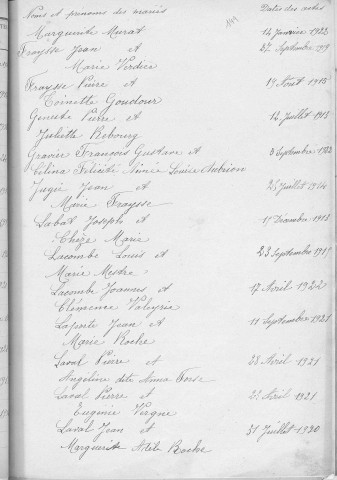 Noms et prénoms des mariés Dates des actes
Marguerite Murat 14 Janvier 1922
Fraysse Jean et 27 Septembre 1919
Marie Verdier
Fraysse Pierre et 19 Août 1913
Toinette Goudour
Geneste Pierre et 12 Juillet 1913
Juliette Rebourg
Gravier François Gustave et 3 Septembre 1922
Célina Félicité Aimée Louise Aubrion
Jugie Jean et Juillet
Marie Fraysse
Labat Joseph et 11 Décembre 1913
Chèze Marie
Lacombe Louis et 23 Septembre
Marie Mestre
Lacombe Joannès et 17 Avril 1922
Clémence Valeyrie
Laporte Jean et 11 Septembre 1921
Marie Roche
Laval Pierre et 28 Avril 1921
Angéline dite Anna Forse
Laval Pierre et 21 Avril 1921
Eugénie Vergne
Laval Jean et 31 Juillet 1920
Marguerite Adèle Roche